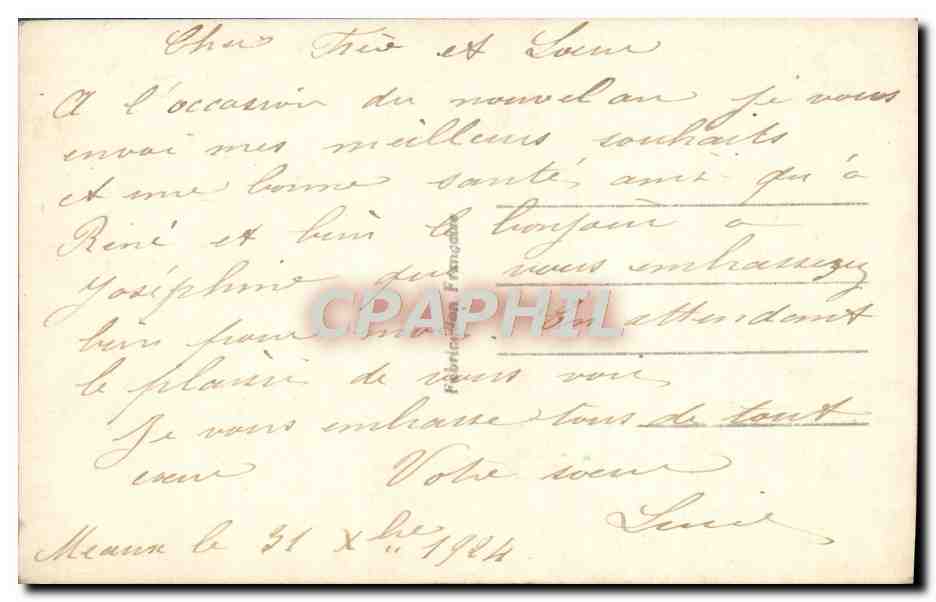 Cher Frère et Sœur
A l'occasion du nouvel an je vous
envoi mes meilleurs souhaits
et une bonne santé, ainsi qu'à
René et bien le bonjour a
Joséphine que vous embrasserez
bien pour moi. En attendant
le plaisir de vous voir,
Je vous embrasse tous de tout
cœur Votre sœur
Lucie
Meaux le 31 Xbre 1924.
Fabrication Française
CPAPHIL